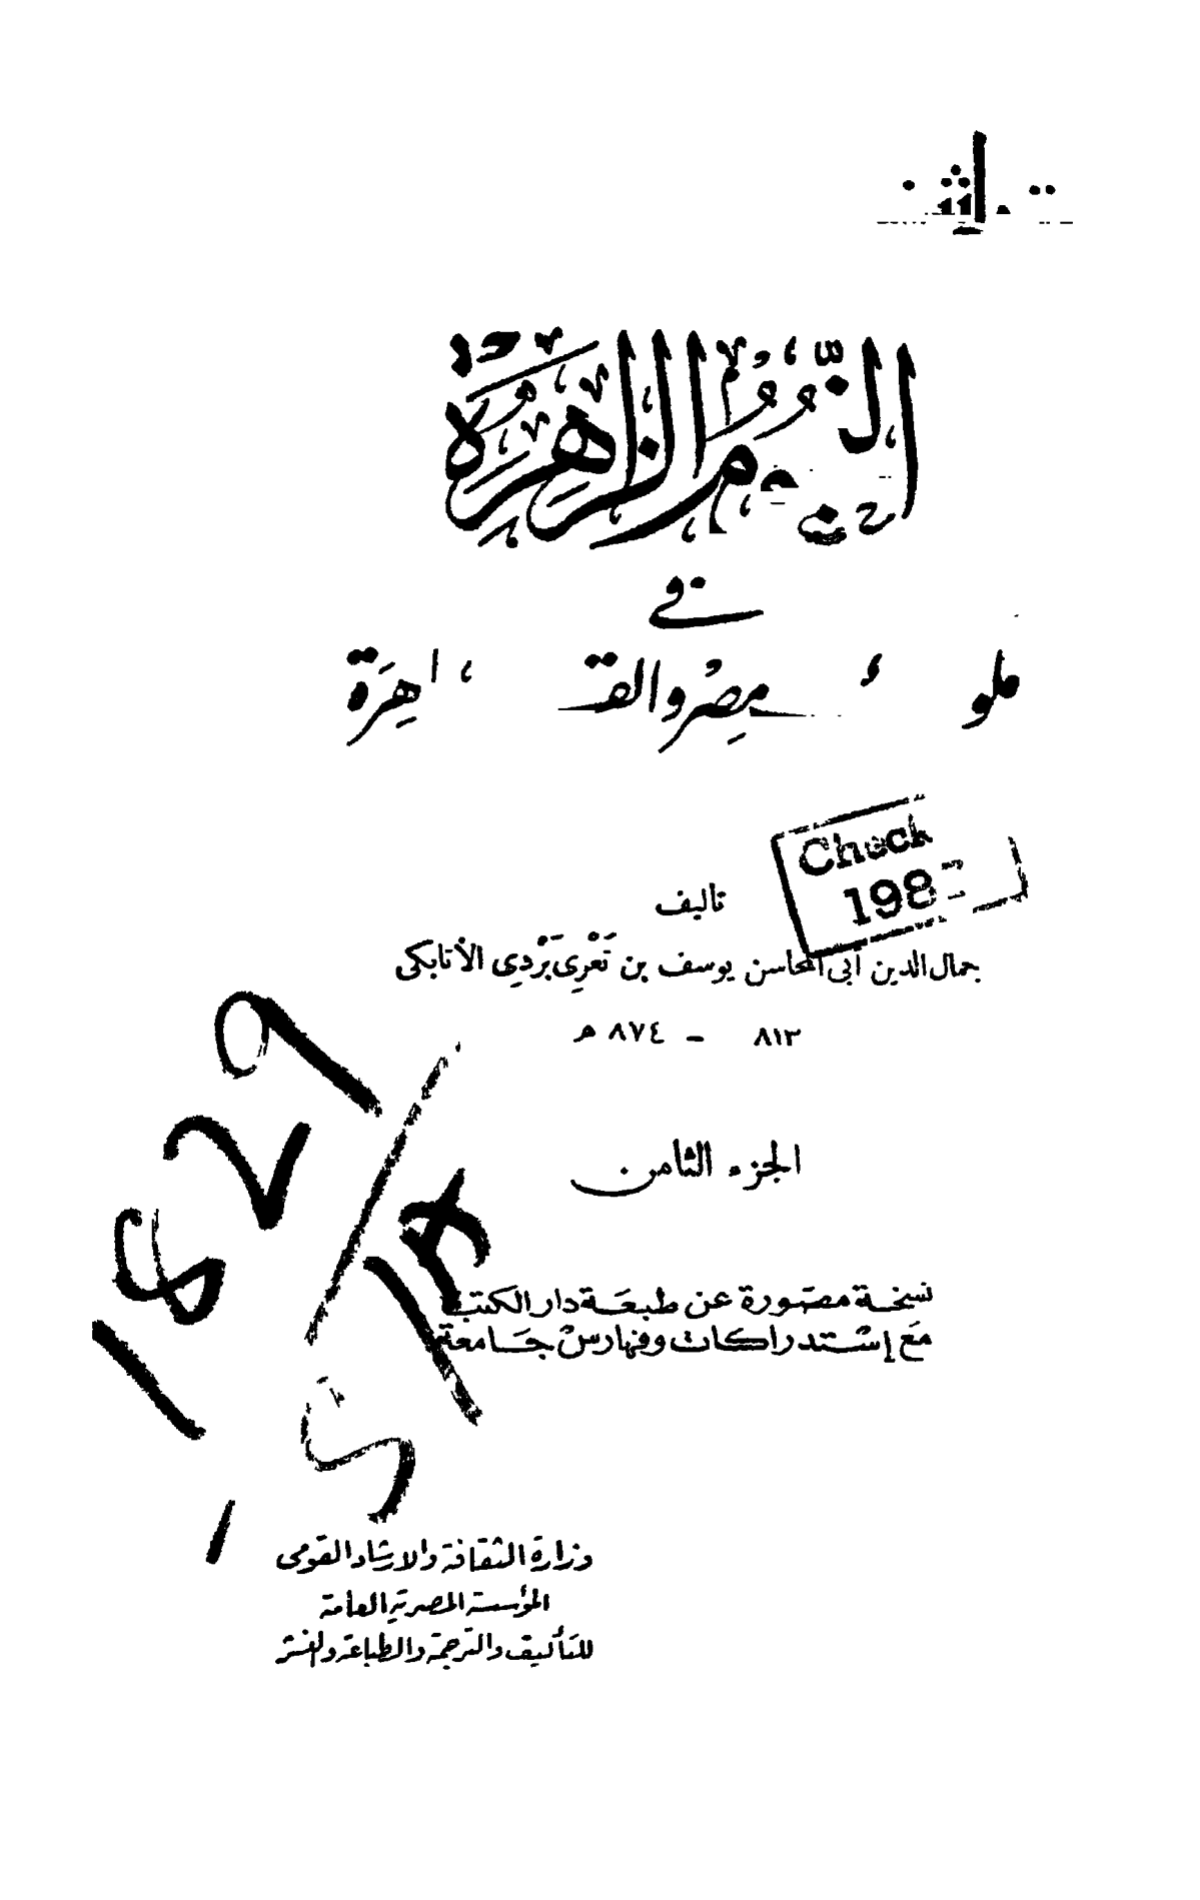 النجوم الزاهرة
في
ملوك مصر والقاهرة
Check
198
تأليف
جمال الدين أبى المحاسن يوسف بن تَغْرِى بَرْدِى الأتابكى
٨١٣ - ٨٧٤ هـ
الجزء الثامن
نسخة مصورة عن طبعة دار الكتب
مع إستدراكات وفهارس جامعة
وزارة الثقافة والارشاد القومى
المؤسسة المصرية العامة
للتأليف والترجمة والطباعة والنشر